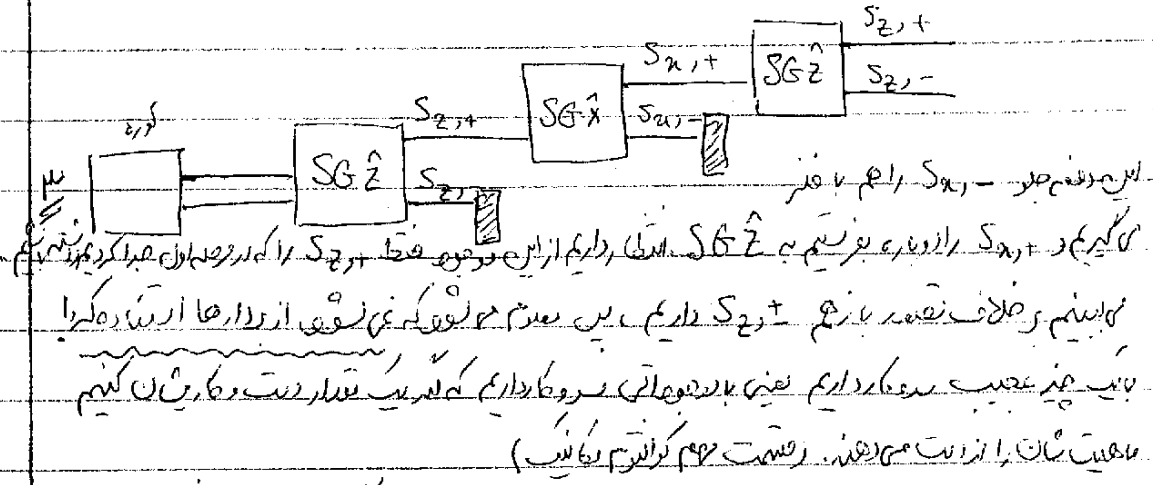 S_z,+
SGẑ
S_z,-
S_x,+
SGx̂
S_x,-
S_z,+
SGẑ
S_z,
کوره
این دفعه جلو S_x,- را هم با فنر
می گیریم و S_x,+ را دوباره بفرستیم به SGẑ انتظار داریم از این موجود فقط S_z,+ را که در مرحله اول جدا کردیم داشته باشیم.
می بینیم بر خلاف تصور باز هم S_z,± داریم، پس معلوم می شود که نمی شود از بردارها استفاده کرد!
با یک چیز عجیب سروکار داریم یعنی با موجوداتی سروکار داریم که اگر یک مقدار دست و کاریشان کنیم
ماهیت شان را از دست می دهند. (قسمت مهم کوانتوم مکانیک)